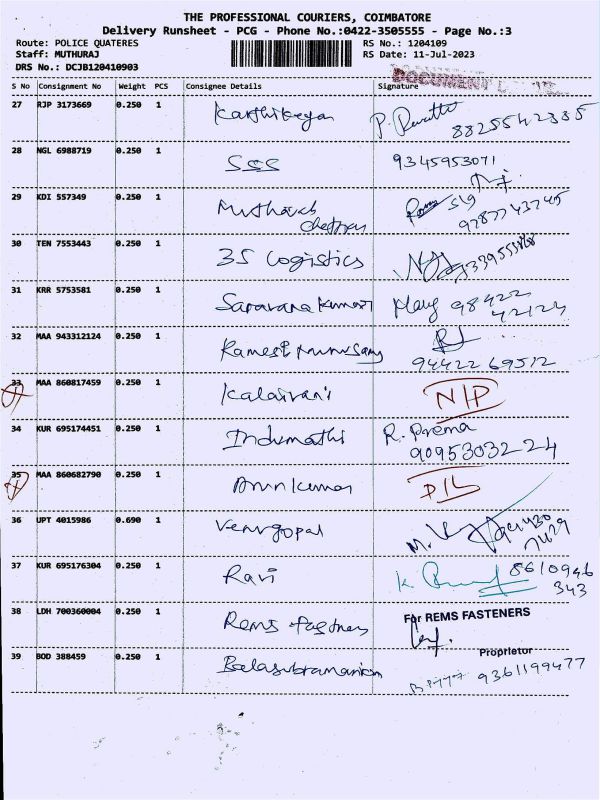 THE PROFESSIONAL COURIERS, COIMBATORE
Delivery Runsheet - PCG - Phone No.:0422-3505555 - Page No.:3
Route: POLICE QUATERES RS No.: 1204109
Staff: MUTHURAJ RS Date: 11-Jul-2023
DRS No.: DCJB120410903
DOCUMENT
S No Consignment No Weight PCS Consignee Details Signature
27 RJP 3173669 0.250 1 Karthikeyan P. Revathi
8825542385
28 NGL 6988719 0.250 1 SSS 9345953071
29 KDI 557349 0.250 1 Muthaiah
Chettiyar
9787743745
30 TEN 7553443 0.250 1 3S Logistics
31 KRR 5753581 0.250 1 Saravana Kumar 98422
42124
32 MAA 943312124 0.250 1 Ramesh
9442269512
33 MAA 860817459 0.250 1 Kalaivani N/P
34 KUR 695174451 0.250 1 Indumathi R. Prema
9095303224
35 MAA 860682790 0.250 1 Arun Kumar D/L
36 UPT 4015986 0.690 1 Venugopal
7429
37 KUR 695176304 0.250 1 Ravi 8610946
343
38 LDH 700360004 0.250 1 Rems fastners For REMS FASTENERS
Proprietor
39 BOD 388459 0.250 1 Balasubramaniam 9361199477